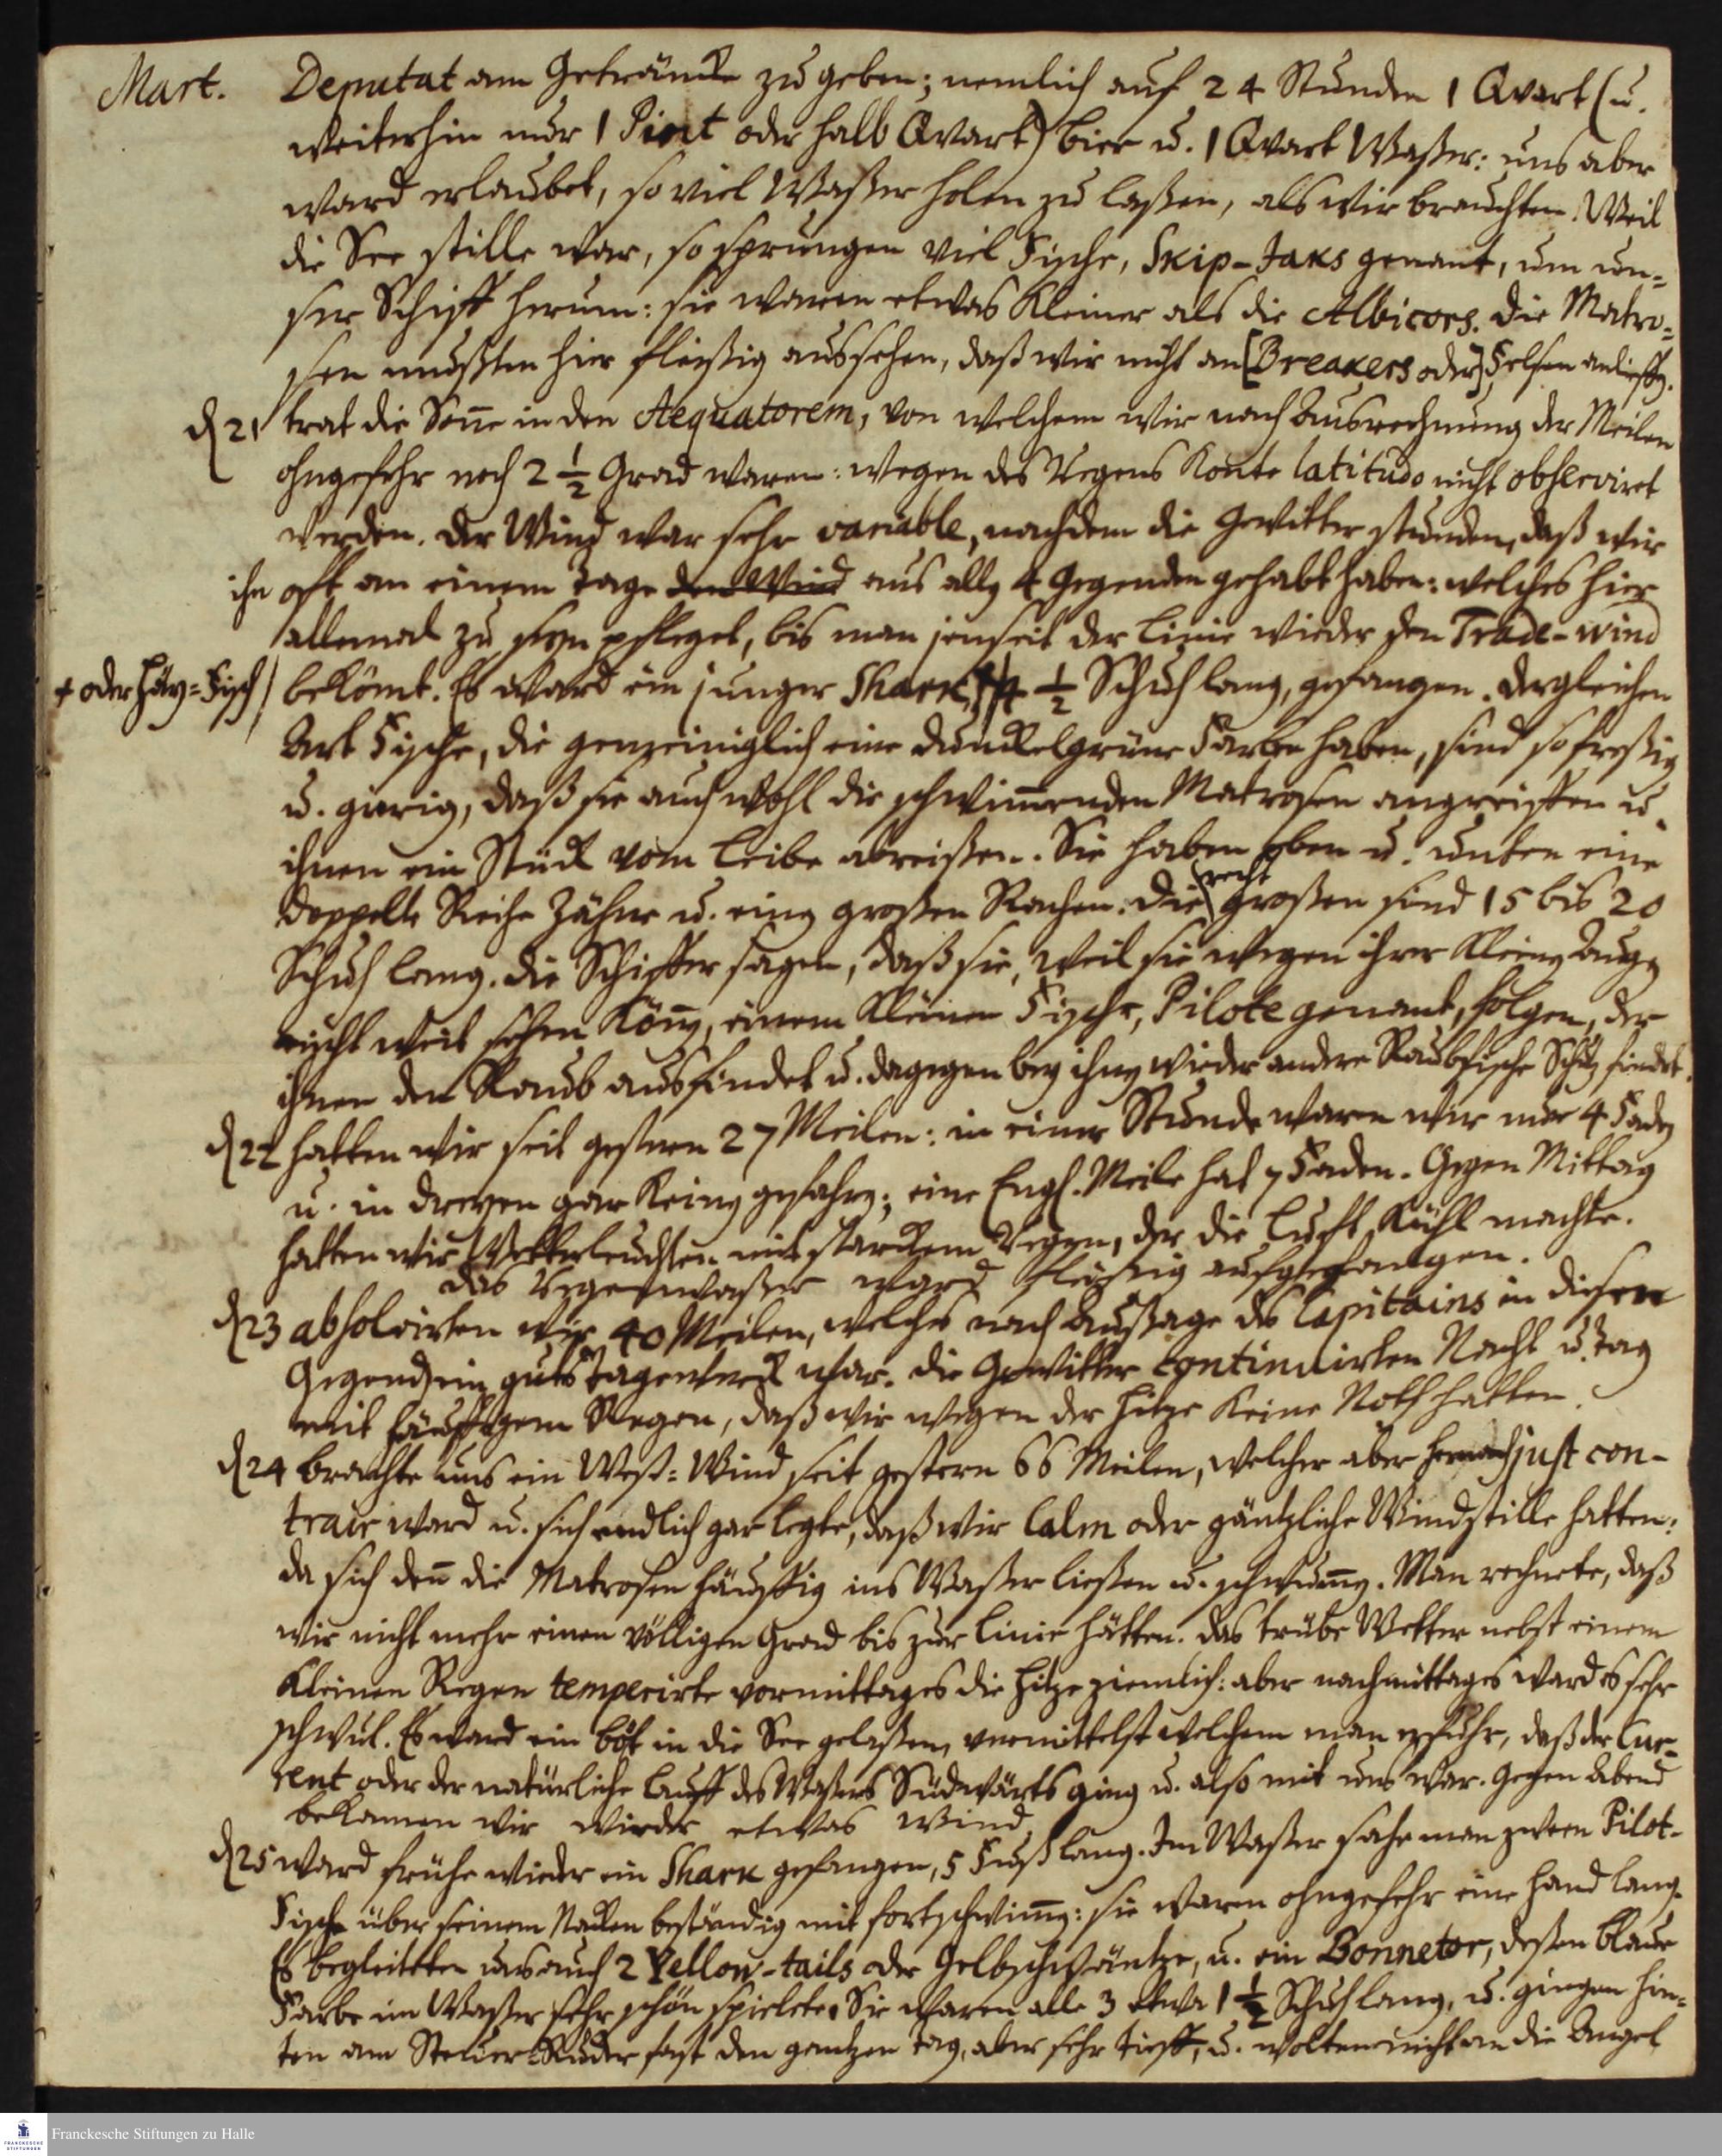 Mart. Deputat am Geträncke zu geben; nemlich auf 24 Stunden 1 Qvart (u.
weiterhin nur 1 Pint oder halb Qvart) bier u. 1 Qvart Waßer: uns aber
ward erlaubet, so viel Waßer holen zu laßen, als wir brauchten. Weil
die See stille war, so sprungen viel Fische, Skip-Jaks genant, um un=
ser Schiff herum: sie waren etwas kleiner als die Albicors. Die Matro=
sen mußten hier fleißig aussehen, daß wir nicht an [Breakers oder] Felsen anlieffen.
d 21 trat die Soñe in den Aequatorem, von welchem wir nach Ausrechnung der Meilen
ohngefehr noch 2 1/2 Grad waren: wegen des Regens konte latitudo nicht observiret
werden. Der Wind war sehr variable, nachdem die Gewitter stunden, daß wir
ihn oft an einem Tage den Wind aus allen 4 Gegenden gehabt haben: welches hier
allemal zu seyn pfleget, bis man jenseit der Linie wieder den Trade-wind
+ oder Häy=Fisch / bekömt. Es ward ein junger Shark, + 4 1/2 Schuh lang, gefangen. Dergleichen
Art Fische, die gemeiniglich eine dunckelgrüne Farbe haben, sind so freßig
u. gierig, daß sie auch wohl die schwim̃enden Matrosen angreiffen u.
ihnen ein Stück vom Leibe abreißen. Sie haben oben u. unten eine
doppelte Reihe Zähne u. einen großen Rachen. Die recht großen sind 15 bis 20
Schuh lang. Die Schiffer sagen, daß sie, weil sie wegen ihrer kleinen Augen
nicht weit sehen köñen, einem kleinen Fische, Pilote genant, folgen, der
ihnen den Raub ausfindet u. dagegen bey ihnen wieder andere Raubfische Schutz findet.
d 22 hatten wir seit gestern 27 Meilen: in einer Stunde waren wir nur 4 Faden
u. in dreyen gar keinen gefahren; eine Engl. Meile hat 7 Faden. Gegen Mittag
hatten wir Wetterleuchten mit starckem Regen, der die Luft kühl machte.
Das Regenwaßer ward fleißig aufgefangen.
d 23 absolvirten wir 40 Meilen, welches nach Außage des Capitains in diesen
Gegenden ein gutes Tagewerck war. Die Gewitter continuirten Nacht u. Tag
mit häuffigem Regen, daß wir wegen der Hitze keine Noth hatten.
d 24 brachte uns ein West=Wind seit gestern 66 Meilen, welcher aber hernach just con-
trair ward u. sich endlich gar legte, daß wir Calm oder gäntzliche Windstille hatten:
da sich deñ die Matrosen häuffig ins Waßer ließen u. schwum̃en. Man rechnete, daß
wir nicht mehr einen völligen Grad bis zur Linie hätten. Das trübe Wetter nebst einem
kleinen Regen temperirte vormittages die Hitze ziemlich: aber nachmittages ward es sehr
schwul. Es ward ein bôt in die See gelaßen, vermittelst welchem man erfuhr, daß der Cur=
rent oder der natürliche Lauff des Waßers Südwärts ging u. also mit uns war. Gegen Abend
bekamen wir wieder etwas Wind.
d 25 ward frühe wieder ein Shark gefangen, 5 Fuß lang. Im Waßer sahe man zween Pilot-
Fische über seinem Nacken beständig mit fortschwim̃en: sie waren ohngefehr eine Hand lang.
Es begleiteten uns auch 2 Yellow-tails oder Gelbschwäntze, u. ein Bonneter, deßen blaue
Farbe im Waßer sehr schön spielete. Sie waren alle 3 etwa 1 1/2 Schuh lang, u. gingen hin=
ten am Steuer=Ruder fast den gantzen Tag, aber sehr tieff, u. wolten nicht an die Angel
Franckesche Stiftungen zu Halle